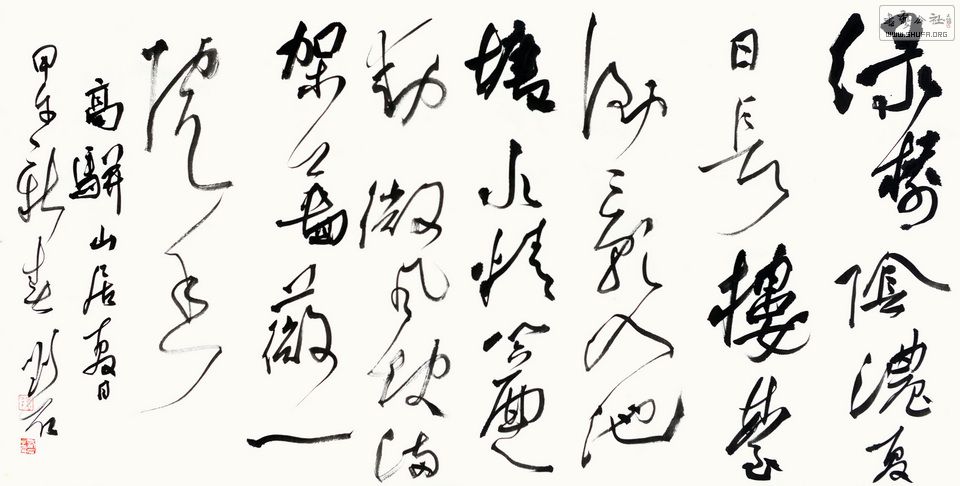 綠樹陰濃夏
日長樓臺
倒影入池
塘水精簾
動微風起滿
架薔薇一
院香
高駢山居夏日
甲午新春
公社
WWW.SHUFA.ORG